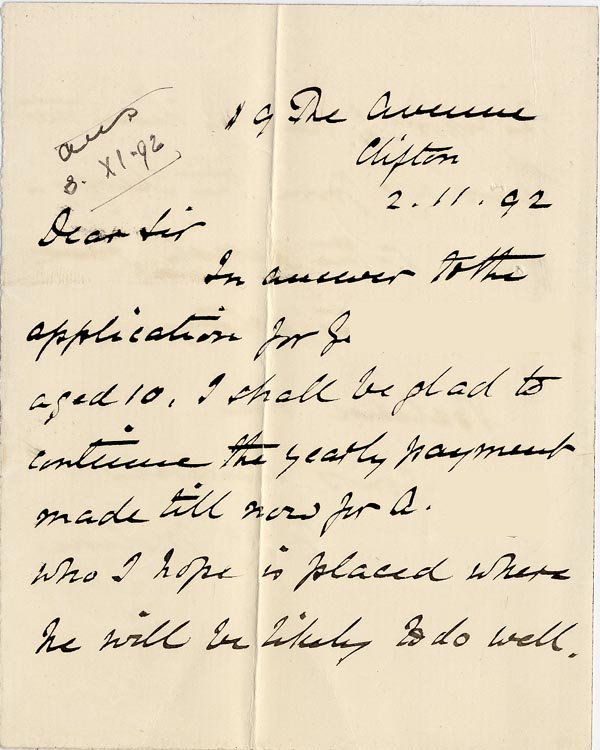 ans
3. XI. 92
19 The Avenue
Clifton
2. 11. 92
Dear Sir
In answer to the
application for G.
aged 10, I shall be glad to
continue the yearly payment
made till now for A.
who I hope is placed where
he will be likely to do well.